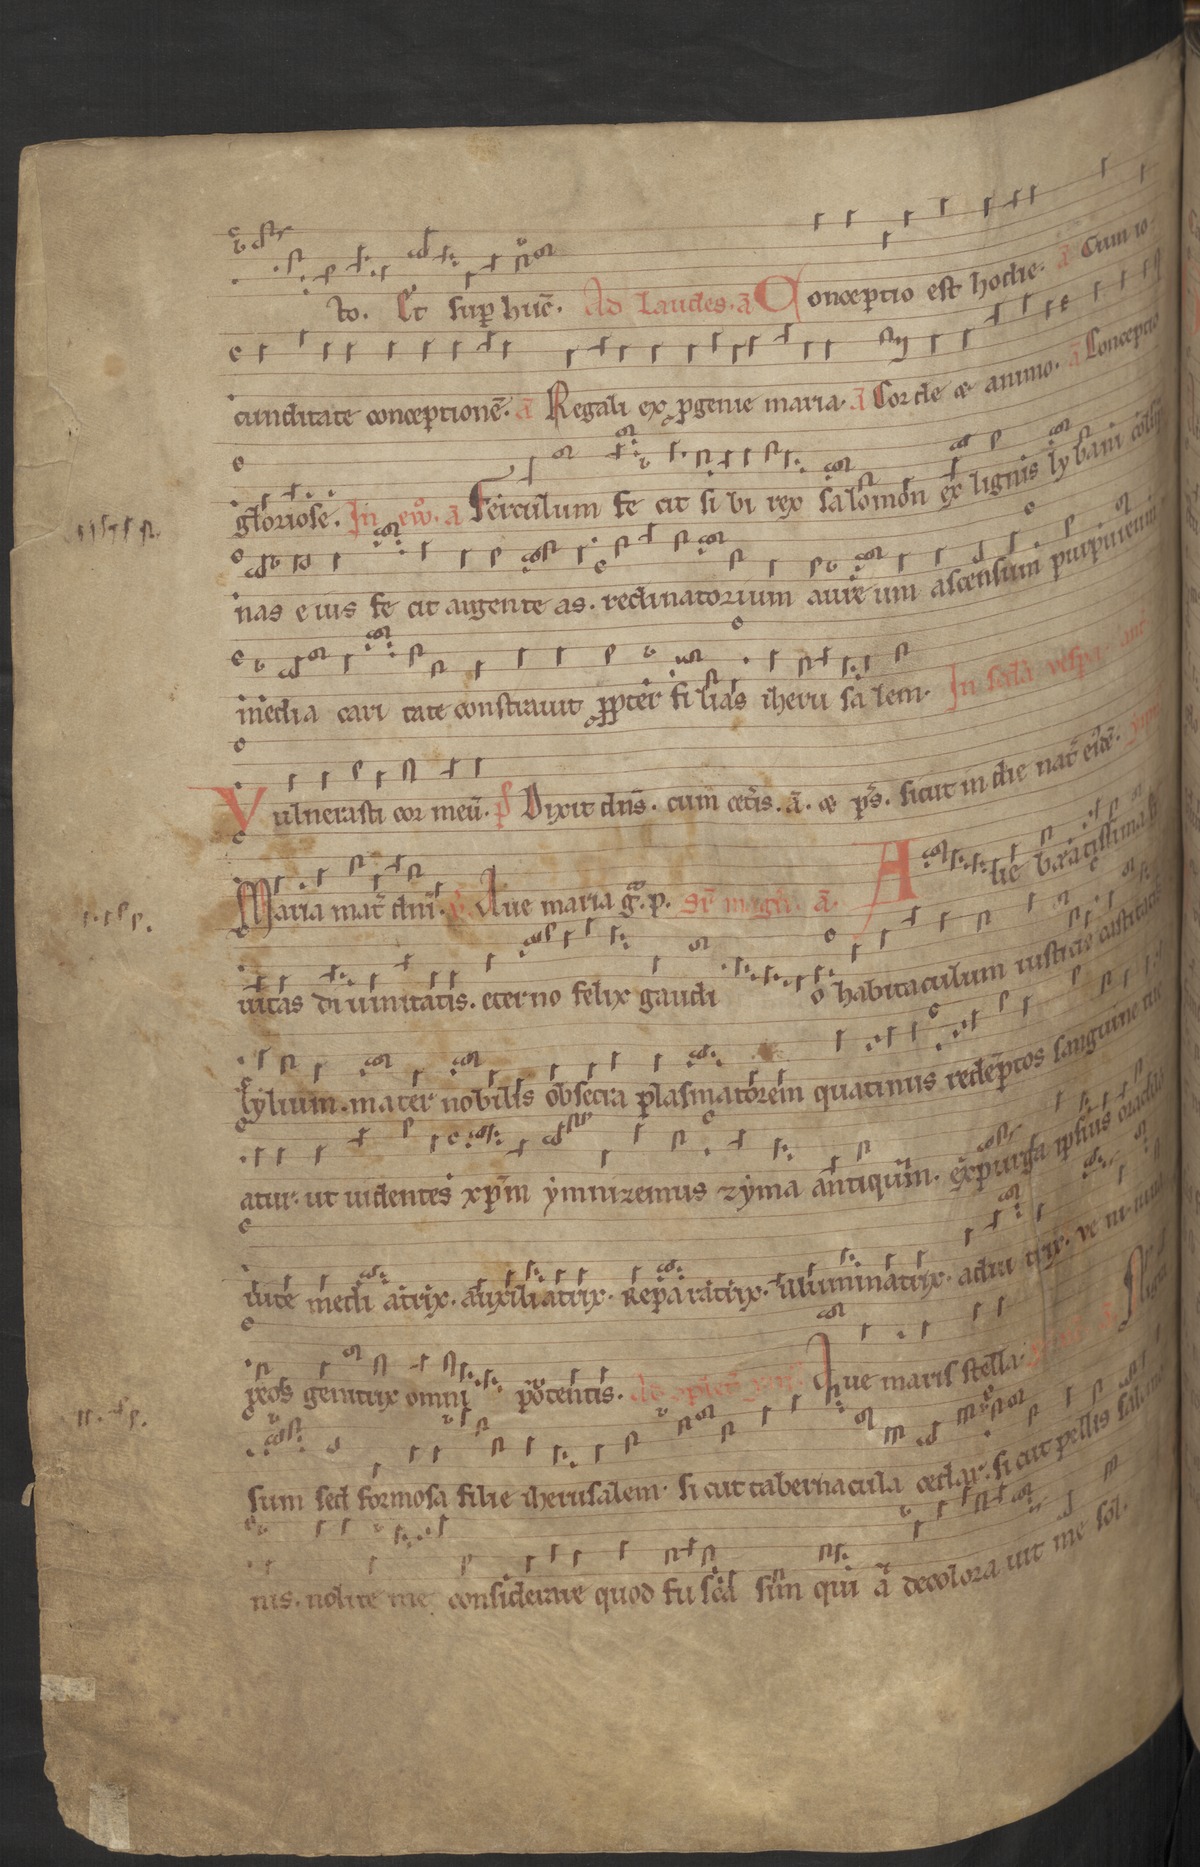 to. Et sup huc̄. Ad Laudes. ā Conceptio est hodie. ā Cum io-
cunditate conceptionē. ā Regali ex p̱genie maria. ā Corde & animo. ā Conceptio
gloriose. In euō. ā Ferculum fe cit si bi rex salomon ex lignis lybani
nas e ius fe cit argente as. reclinatorium aure um ascensum purpureum
media cari tate constrauit p̱pter fi lias iheru sa lem. In
Vulnerasti cor meū. p̄s Dixit dn̄s. cum cet̄is. ā. & p̄s. sicut in die nat̄ eidē.
Maria mat̄ dn̄i. Aue maria ḡ. p. ā. A lie beatissima
uitas di uinitatis. eterno felix gaudi o habitaculum iusticie castitatis
lylium. mater nobilis obsecra plasmatorem quatinus redēptos sanguine
atur. ut uidentes xp̄m ymnizemus zyma antiquū. expurga ipsius oracula
iute medi atrix. auxiliatrix. Reparatrix. illuminatrix. adiu trix. ve ni
reos genitrix omni potentis. Aue maris stella.
sum sed formosa filie iherusalem. sicut tabernacula cedar. si cut pellis
nis. nolite me considerare quod fu sca sim qui a decolora uit me sol.